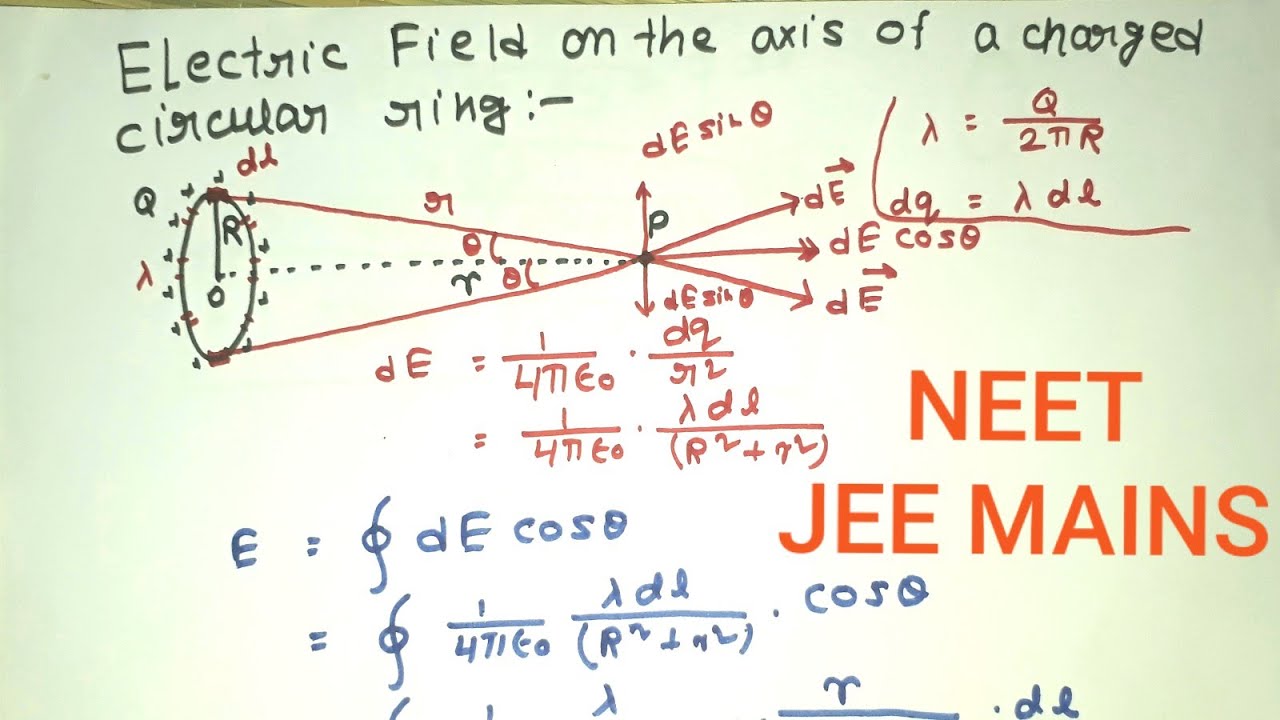 Electric Field on the axis of a charged
circular ring:-
dE sinθ
λ = Q / 2πR
dq = λ dl
dl
Q
R
λ
O
r
θ
θ
r
P
dE
dE cosθ
dE
dE sinθ
dE = 1/4πϵ0 · dq/r²
= 1/4πϵ0 · λ dl/(R²+r²)
NEET
JEE MAINS
E = ∮ dE cosθ
= ∮ 1/4πϵ0 λ dl/(R²+r²) · cosθ
1 λ r · dl